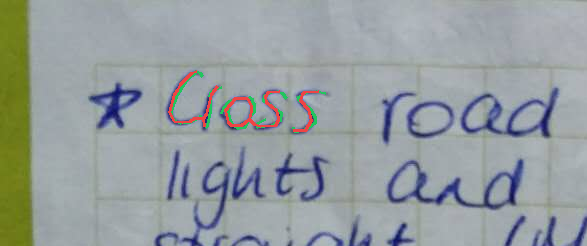 * Cross road
lights and
straight